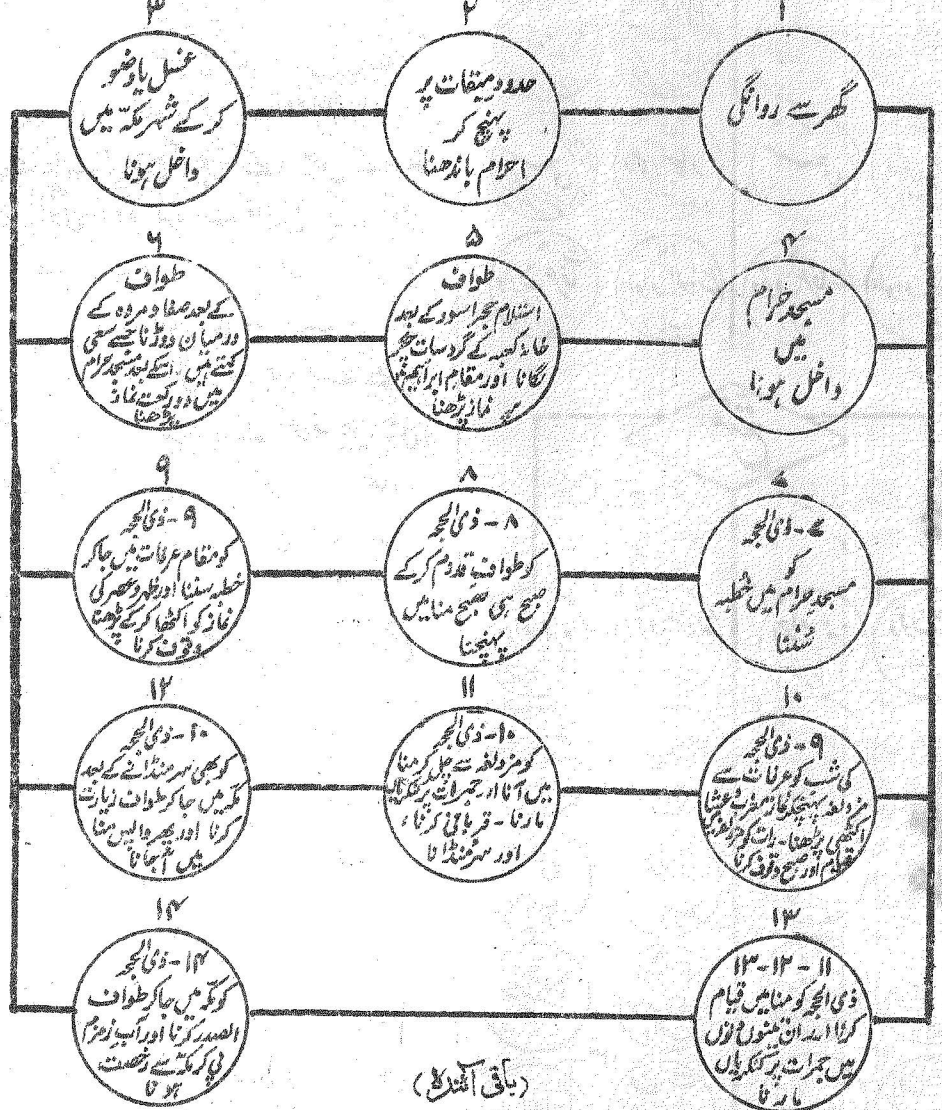 ۱
گھر سے روانگی
۲
حدود میقات پر
پہنچ کر
احرام باندھنا
۳
غسل یا وضو
کر کے شہر مکہ میں
داخل ہونا
۴
مسجد حرام
میں
داخل ہونا
۵
طواف
استلام حجر اسود کے بعد
خانہ کعبہ کے گرد سات چکر
لگانا اور مقام ابراہیم پر
نماز پڑھنا
۶
طواف
کے بعد صفا و مروہ کے
درمیان دوڑنا جسے سعی
کہتے ہیں۔ اسکے بعد مسجد حرام
میں دو رکعت نماز
پڑھنا
۷
۷-ذی الحجہ
کو
مسجد حرام میں خطبہ
سُننا
۸
۸-ذی الحجہ
کو طواف قدوم کر کے
صبح ہی صبح منا میں
پہنچنا
۹
۹-ذی الحجہ
کو مقام عرفات میں جا کر
خطبہ سننا اور ظہر و عصر کی
نماز کو اکٹھا کر کے پڑھنا
وقوف کرنا
۱۰
۹-ذی الحجہ
کی شب کو عرفات سے
مزدلفہ پہنچکر نماز مغرب و عشا
اکٹھی پڑھنا۔ رات کو
اور صبح وقوف کرنا
۱۱
۱۰-ذی الحجہ
کو مزدلفہ سے چل کر منا
میں آنا اور جمرات پر کنکریاں
مارنا۔ قربانی کرنا،
اور سر منڈانا
۱۲
۱۰-ذی الحجہ
کو بھی سر منڈانے کے بعد
مکہ میں جا کر طواف زیارت
کرنا اور پھر واپس منا
میں آ جانا
۱۳
۱۱-۱۲-۱۳
ذی الحجہ کو منا میں قیام
کرنا اور ان تینوں دنوں
میں جمرات پر کنکریاں
مارنا
۱۴
۱۴-ذی الحجہ
کو مکہ میں جا کر طواف
الصدر کرنا اور آب زمزم
پی کر مکہ سے رخصت
ہونا
(باقی آئندہ)